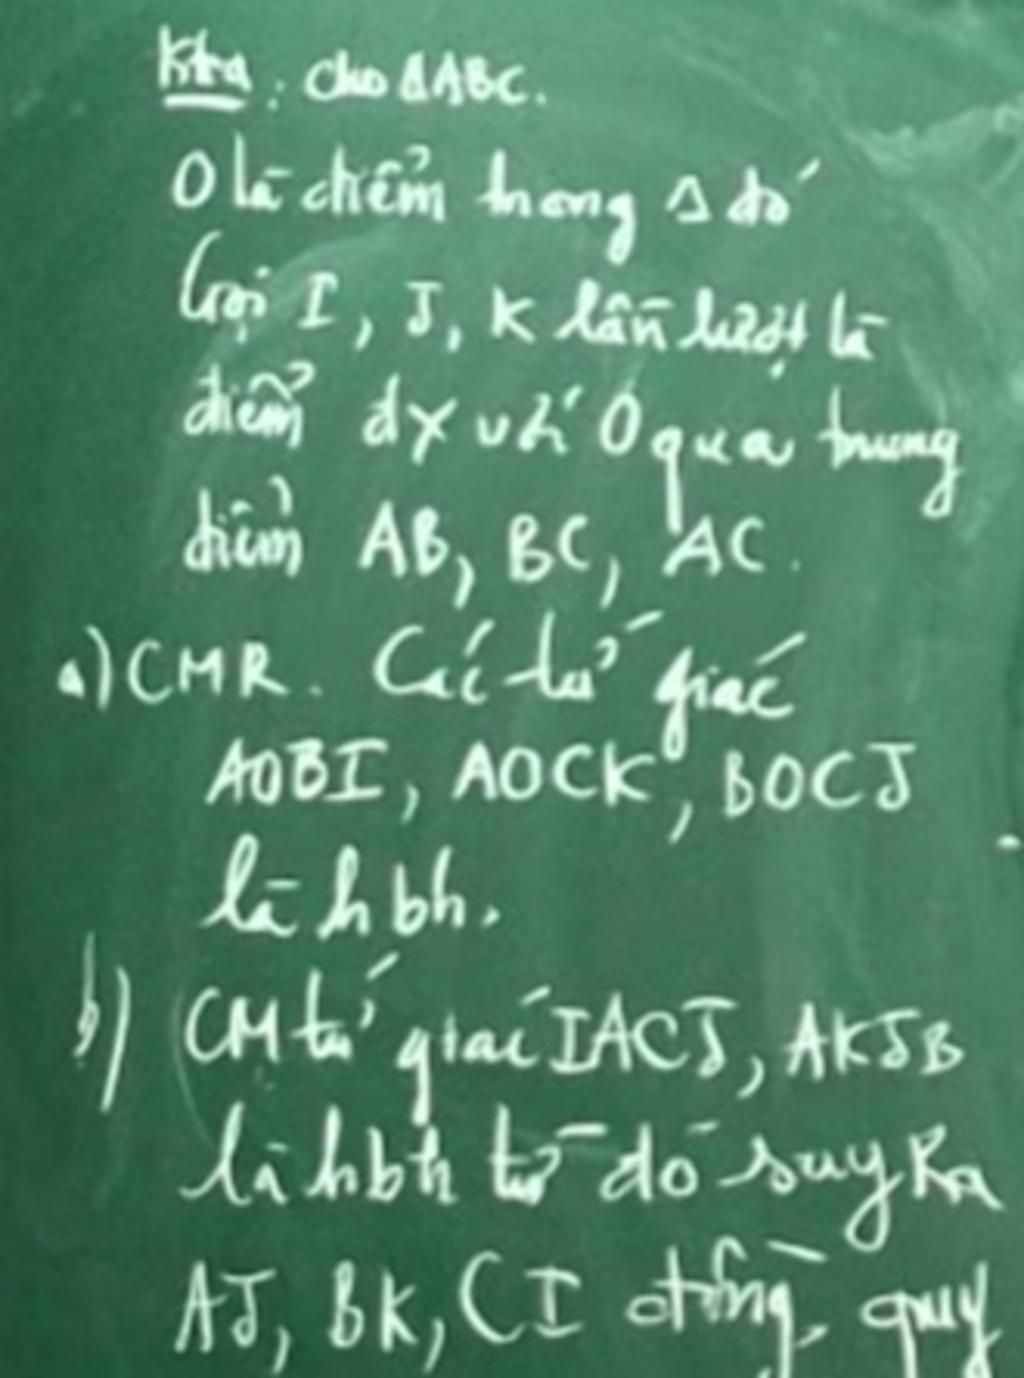 Ktra : cho ΔABC.
O là điểm trong Δ đó
Gọi I, J, K lần lượt là
điểm đx với O qua trung
điểm AB, BC, AC.
a) CMR. Các tứ giác
AOBI, AOCK, BOCJ
là hbh.
b) CM tứ giác IACJ, AKJB
là hbh từ đó suy ra
AJ, BK, CI đồng quy